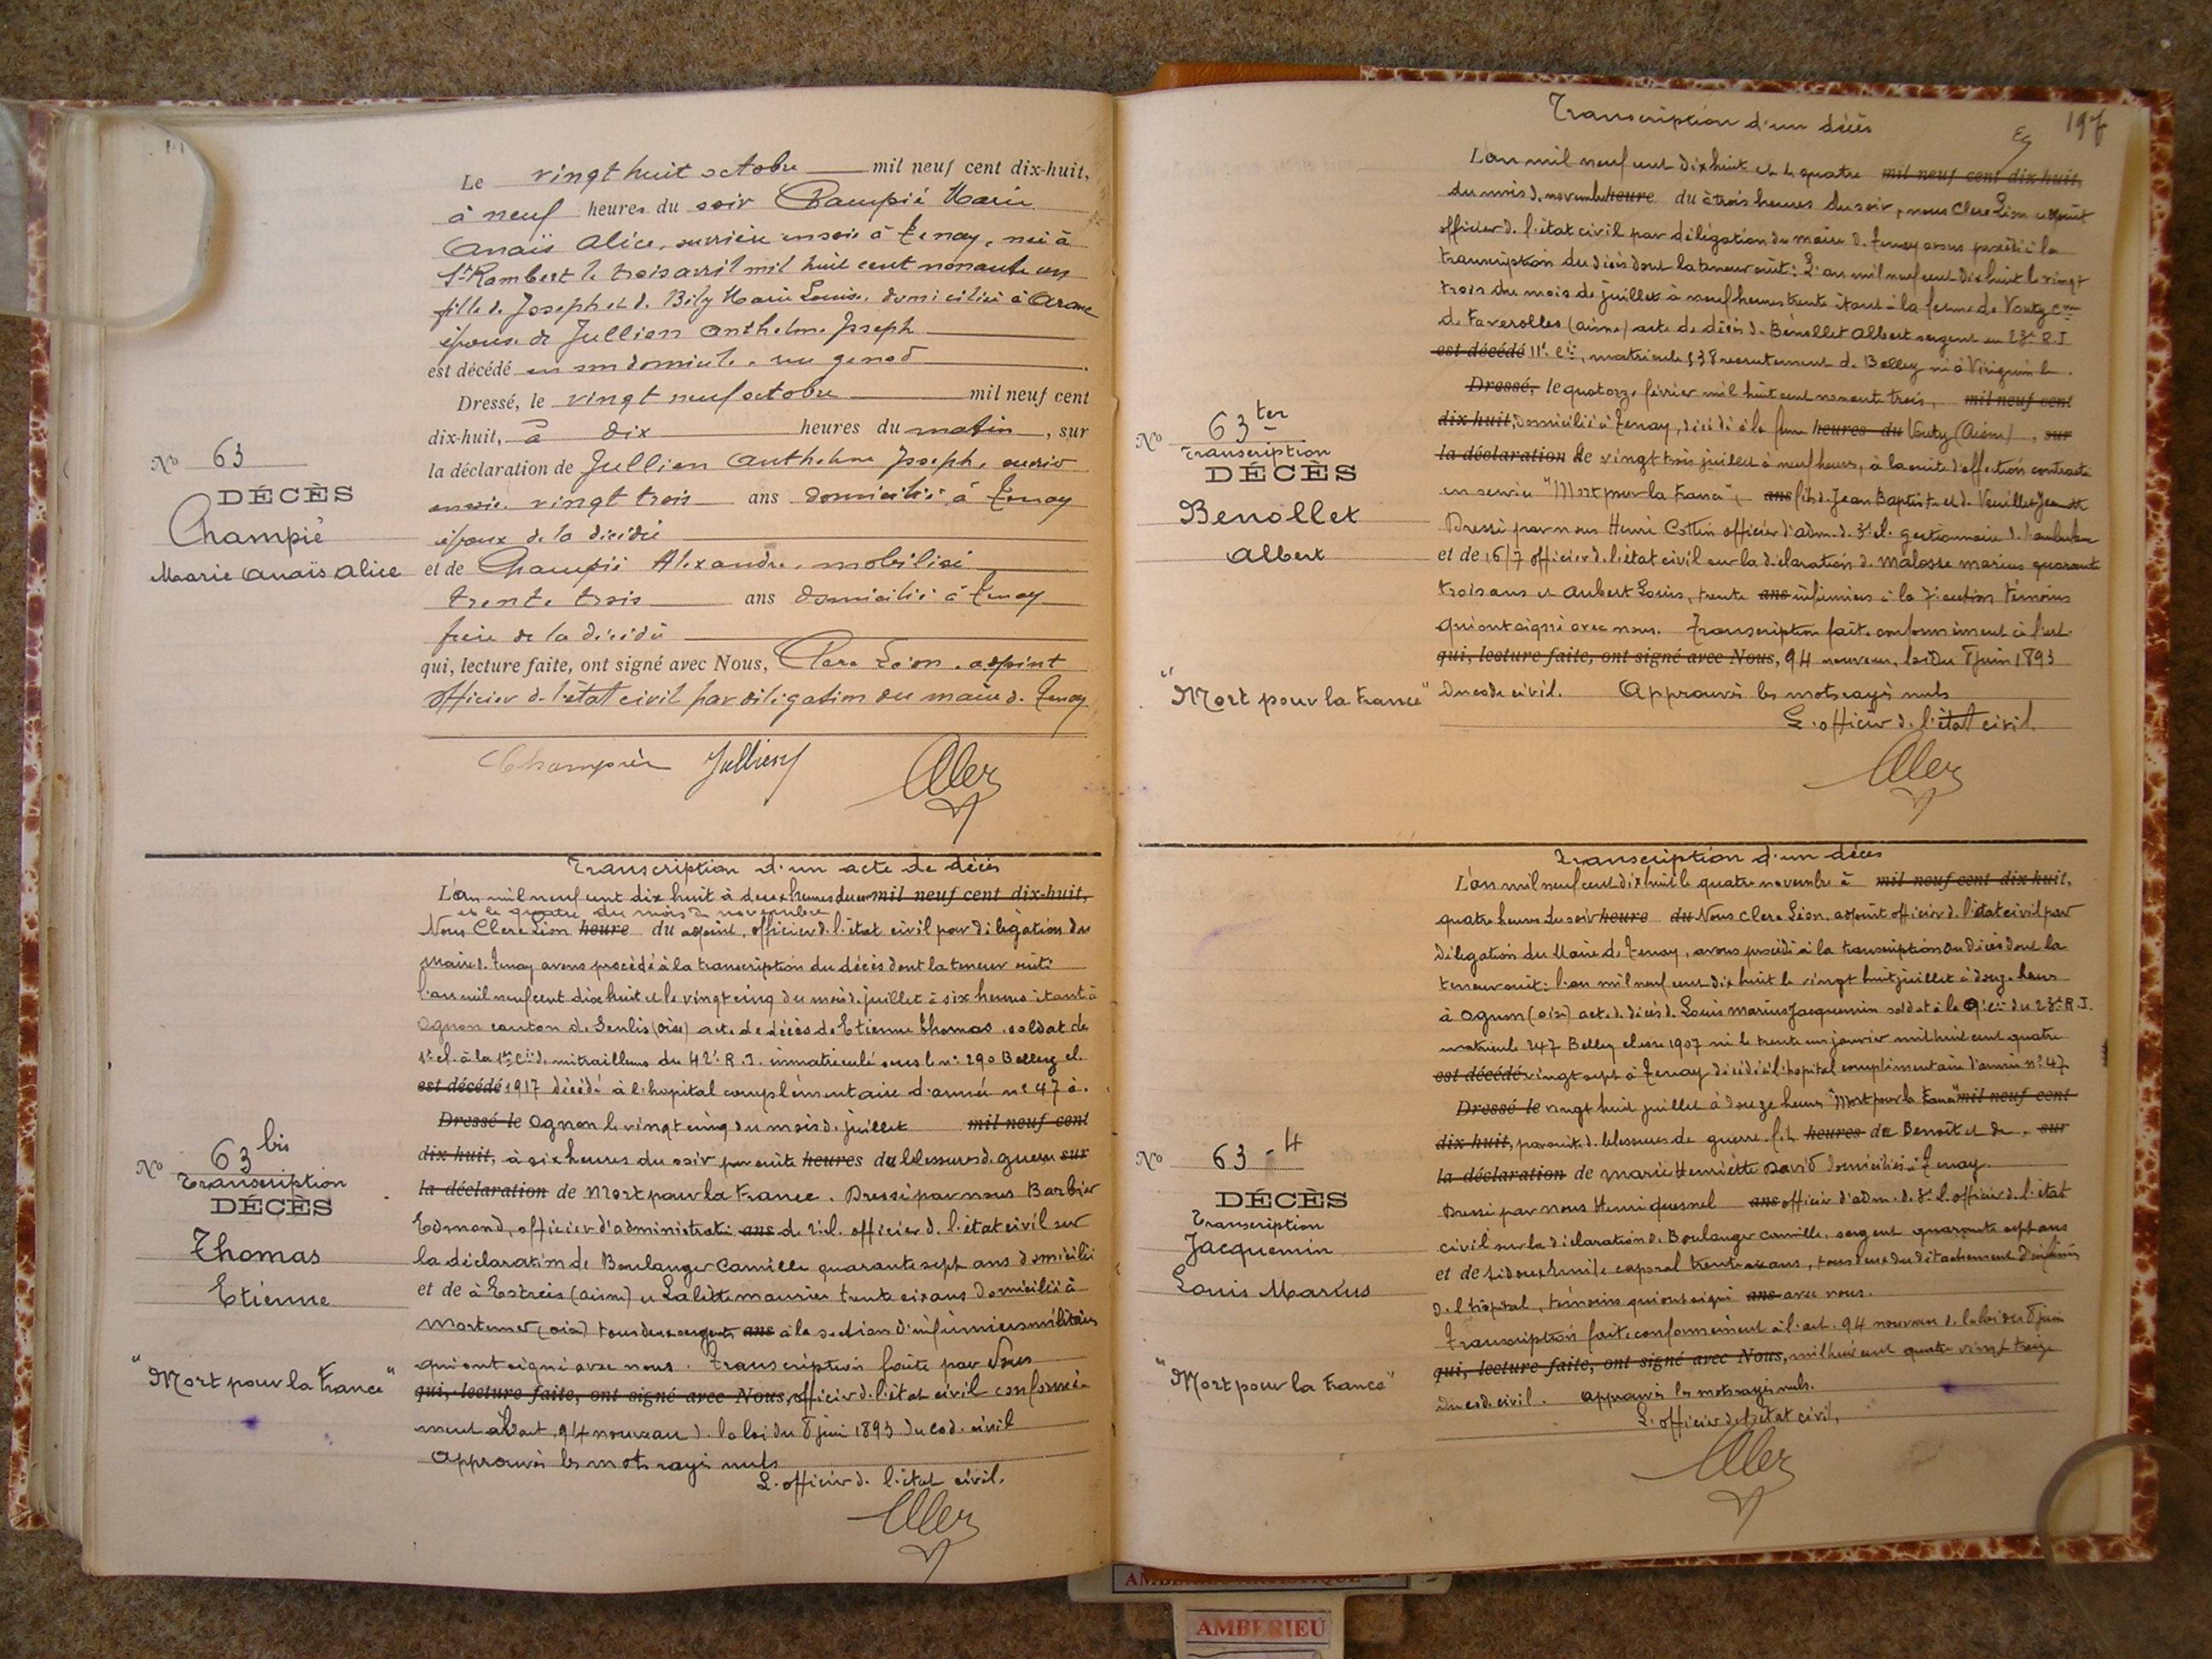 Le vingt huit octobre mil neuf cent dix-huit,
à neuf heures du soir Champié Marie
Anaïs Alice, ouvrière en soie à Tenay, née à
St Rambert le trois avril mil huit cent nonante un
fille de Joseph et de Bily Marie Louise, domiciliée à Aranc
épouse de Jullien Anthelme Joseph
est décédé en son domicile, rue genod
Dressé, le vingt neuf octobre mil neuf cent
dix-huit, à dix heures du matin, sur
la déclaration de Jullien Anthelme Joseph, ouvrier
en soie vingt trois ans domicilié à Tenay
époux de la décédée
et de Champié Alexandre, mobilisé
trente trois ans domicilié à Tenay
frère de la décédée
qui, lecture faite, ont signé avec Nous, Clerc Léon, adjoint
officier de l'état civil par délégation du maire de Tenay
Champié Jullien Clerc
No 63
DÉCÈS
Champié
Marie Anaïs Alice
Transcription d'un acte de décès
L'an mil neuf cent dix huit à deux heures du soir mil neuf cent dix-huit,
et le quatre du mois de novembre
Nous Clerc Léon heure du adjoint, officier de l'état civil par délégation du
Maire de Tenay avons procédé à la transcription du décès dont la teneur suit:
l'an mil neuf cent dix huit et le vingt cinq du mois de juillet à six heures étant à
Ognon canton de Senlis (oise) acte de décès de Etienne Thomas, soldat de
1e cl. à la 1re Cie de mitrailleuses du 42e R.I. immatriculé sous le n° 290 Belley cl.
est décédé 1917 décédé à l'hopital complémentaire d'armée n° 47 à
Dressé le Ognon le vingt cinq du mois de juillet mil neuf cent
dix-huit, à six heures du soir par suite heures du blessures de guerre sur
la déclaration de Mort pour la France. Dressé par nous Barbier
Edmond, officier d'administrati ans de 2e cl. officier de l'état civil sur
la déclaration de Boulanger Camille quarante sept ans domicilié
et de à Estreis (aisne) et Lalitte maurier trente six ans domicilié à
Mortemer (oise) tous deux sergents ans à la section d'infirmiers militaires
qui ont signé avec nous. Transcription faite par Nous
qui, lecture faite, ont signé avec Nous, officier de l'état civil conformé-
ment à l'art. 94 nouveau de la loi du 8 juin 1893 du code civil
Approuvés les mots rayés nuls
L'officier de l'état civil,
Clerc
No 63 bis
Transcription
DÉCÈS
Thomas
Etienne
"Mort pour la France"
197
Transcription d'un décès
L'an mil neuf cent dix huit et le quatre mil neuf cent dix-huit,
du mois de novembre heure du à trois heures du soir, nous Clerc Léon adjoint
officier de l'état civil par délégation du maire de Tenay avons procédé à la
transcription du décès dont la teneur suit: L'an mil neuf cent dix huit le vingt
trois du mois de juillet à neuf heures trente étant à la ferme de Vouty Cne
de Faverolles (aisne) acte de décès de Bénollet Albert sergent au 23e R.I
est décédé 11e Cie, matricule 538 recrutement de Belley né à Virignin le
Dressé, le quatorze février mil huit cent nonante trois, mil neuf cent
dix-huit, domicilié à Tenay, décédé à la ferme heures du Vouty (Aisne), sur
la déclaration de le vingt trois juillet à neuf heures, à la suite d'affection contractée
en service "Mort pour la France", ans fils de Jean Baptiste et de Veuillet Jeannette
Dressé par nous Henri Cottin officier d'adm. de 3e cl. gestionnaire de l'ambulance
et de 16/7 officier de l'état civil sur la déclaration de Malosse marius quarante
trois ans et Aubert Louis, trente ans infirmiers à la 7e section témoins
qui ont signé avec nous. Transcription faite conformément à l'art.
qui, lecture faite, ont signé avec Nous, 94 nouveau, loi du 8 juin 1893
du code civil. Approuvés les mots rayés nuls
L'officier de l'état civil.
Clerc
No 63 ter
Transcription
DÉCÈS
Benollet
Albert
"Mort pour la France"
Transcription d'un décès
L'an mil neuf cent dix huit le quatre novembre à mil neuf cent dix-huit,
quatre heures du soir heure du Nous Clerc Léon, adjoint officier de l'état civil par
délégation du Maire de Tenay, avons procédé à la transcription du décès dont la
teneur suit: l'an mil neuf cent dix huit le vingt huit juillet à douze heures
à Ognon (oise) acte de décès de Louis Marius Jacquemin soldat à la 9e Cie du 23e R.I.
matricule 247 Belley classe 1907 né le trente un janvier mil huit cent quatre
est décédé vingt sept à Tenay décédé à l'hopital complimentaire d'armée n° 47
Dressé le vingt huit juillet à douze heures "Mort pour la France" mil neuf cent
dix-huit, par suite de blessures de guerre fils heures du de Benoît et de sur
la déclaration de marie Henriette David domiciliés à Tenay.
Dressé par nous Henri quesnel ans officier d'adm. de 3e cl. officier de l'état
civil sur la déclaration de Boulanger Camille, sergent quarante sept ans
et de caporal trente six ans, tous deux du détachement d'infirmiers
de l'hôpital, témoins qui ont signé ans avec nous.
Transcription faite conformément à l'art. 94 nouveau de la loi du 8 juin
qui, lecture faite, ont signé avec Nous, mil huit cent quatre vingt treize
du code civil. approuvés les mots rayés nuls.
L'officier de l'état civil,
Clerc
No 63 - 4
DÉCÈS
Transcription
Jacquemin
Louis Marius
"Mort pour la France"
AMBERIEU